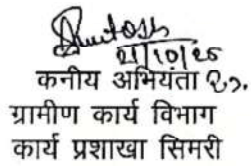 21/10/25
कनीय अभियंता
ग्रामीण कार्य विभाग
कार्य प्रशाखा सिमरी